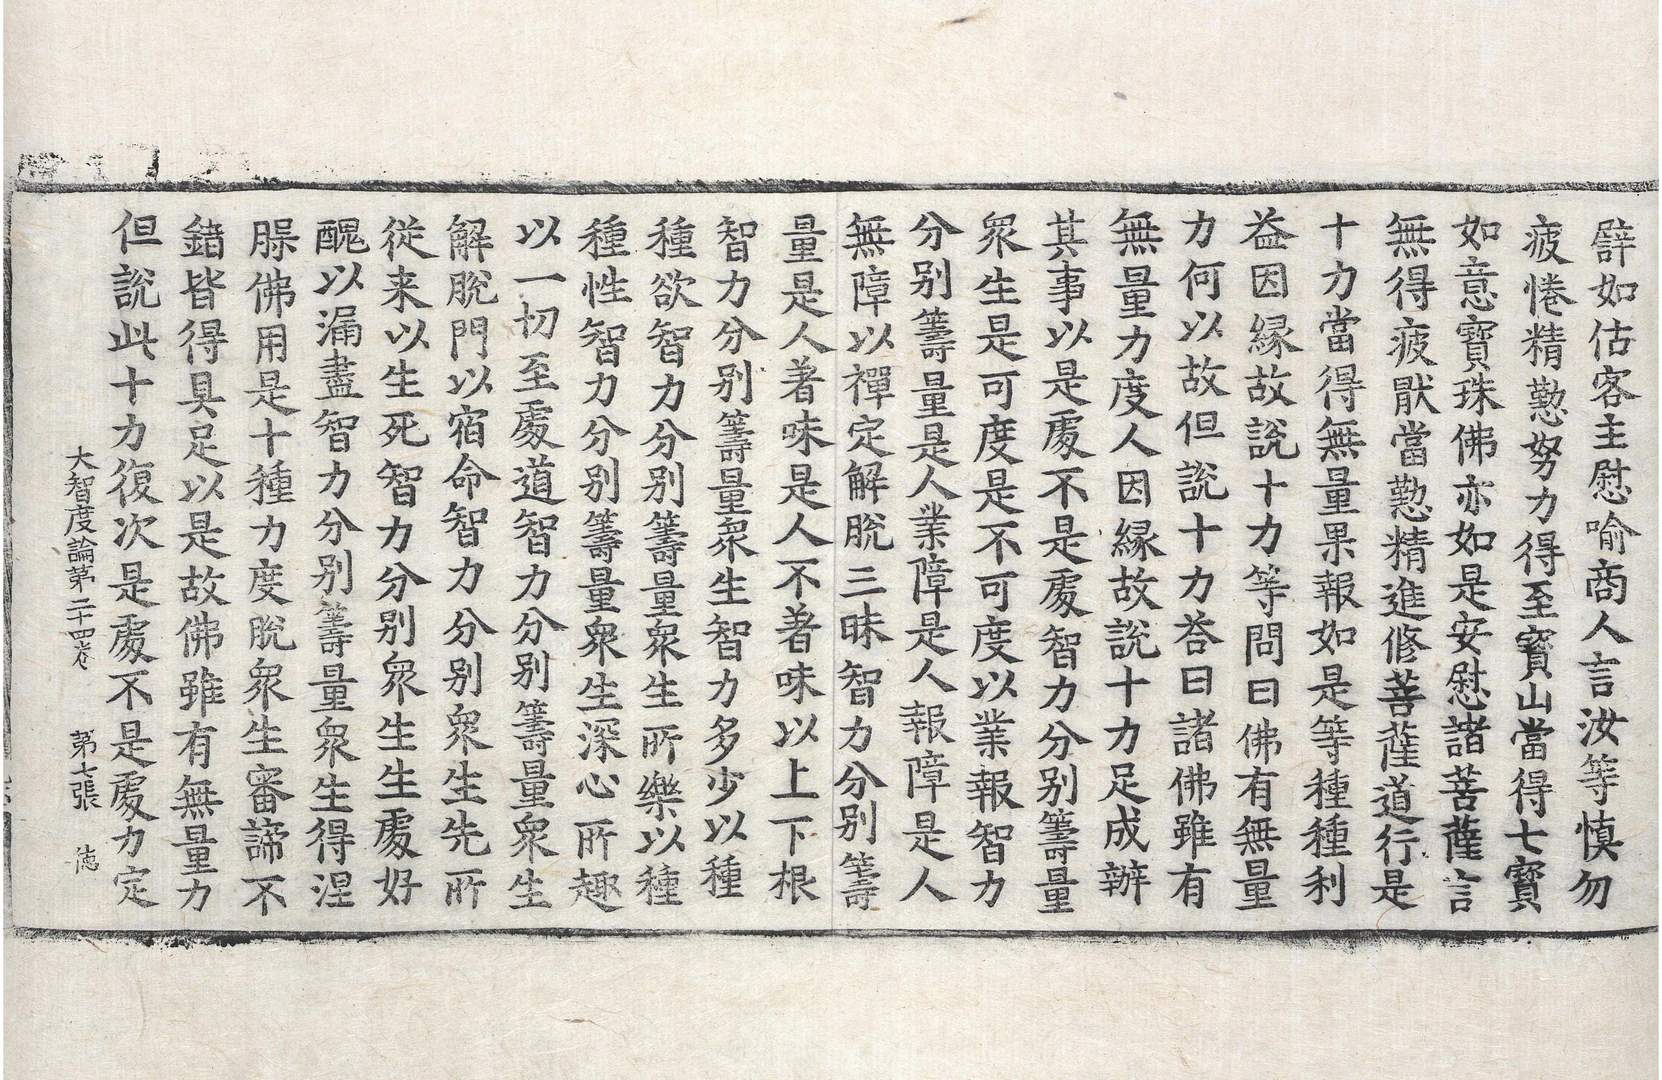 譬如估客主慰喻商人言汝等慎勿
疲惓精懃努力得至寶山當得七寶
如意寶珠佛亦如是安慰諸菩薩言
無得疲猒當懃精進修菩薩道行是
十力當得無量果報如是等種種利
益因緣故說十力等問曰佛有無量
力何以故但說十力荅曰諸佛雖有
無量力度人因緣故說十力足成辦
其事以是處不是處智力分別籌量
衆生是可度是不可度以業報智力
分別籌量是人業障是人報障是人
無障以禪定解脫三昧智力分別籌
量是人著味是人不著味以上下根
智力分別籌量衆生智力多少以種
種欲智力分別籌量衆生所樂以種
種性智力分別籌量衆生深心所趣
以一切至處道智力分別籌量衆生
解脫門以宿命智力分別衆生先所
從来以生死智力分別衆生生處好
醜以漏盡智力分別籌量衆生得涅
𦙁佛用是十種力度脫衆生審諦不
錯皆得具足以是故佛雖有無量力
但說此十力復次是處不是處力定
大智度論第二十四卷 第七張 徳